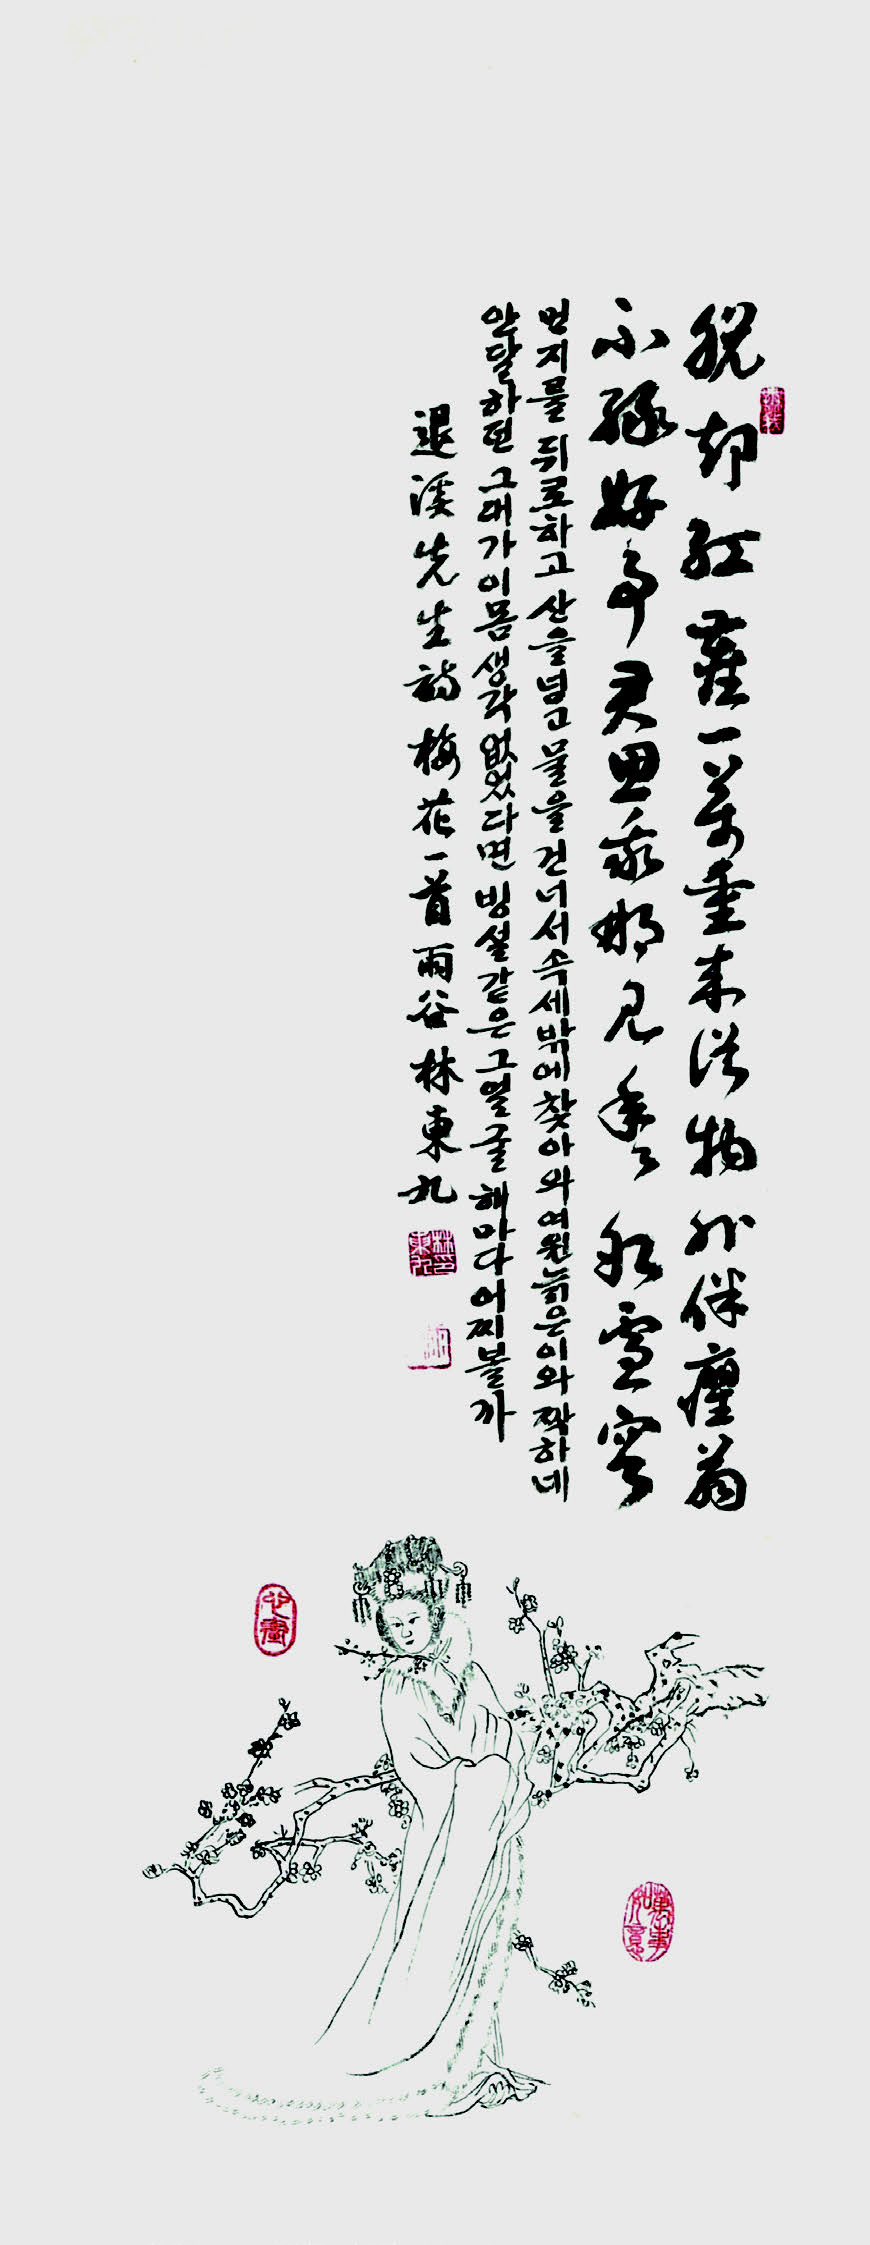 脫却紅塵一萬重來從物外伴癯翁
不緣好事君思我那見年々氷雪容
먼지를 뒤로하고 산을넘고 물을 건너서 속세밖에 찾아와 여윈늙은이와 짝하네
안달하던 그대가 이몸 생각 없었다면 빙설같은 그얼굴 해마다 어찌볼까
退溪先生詩梅花一首雨谷林東九
林東九印
萬事如意